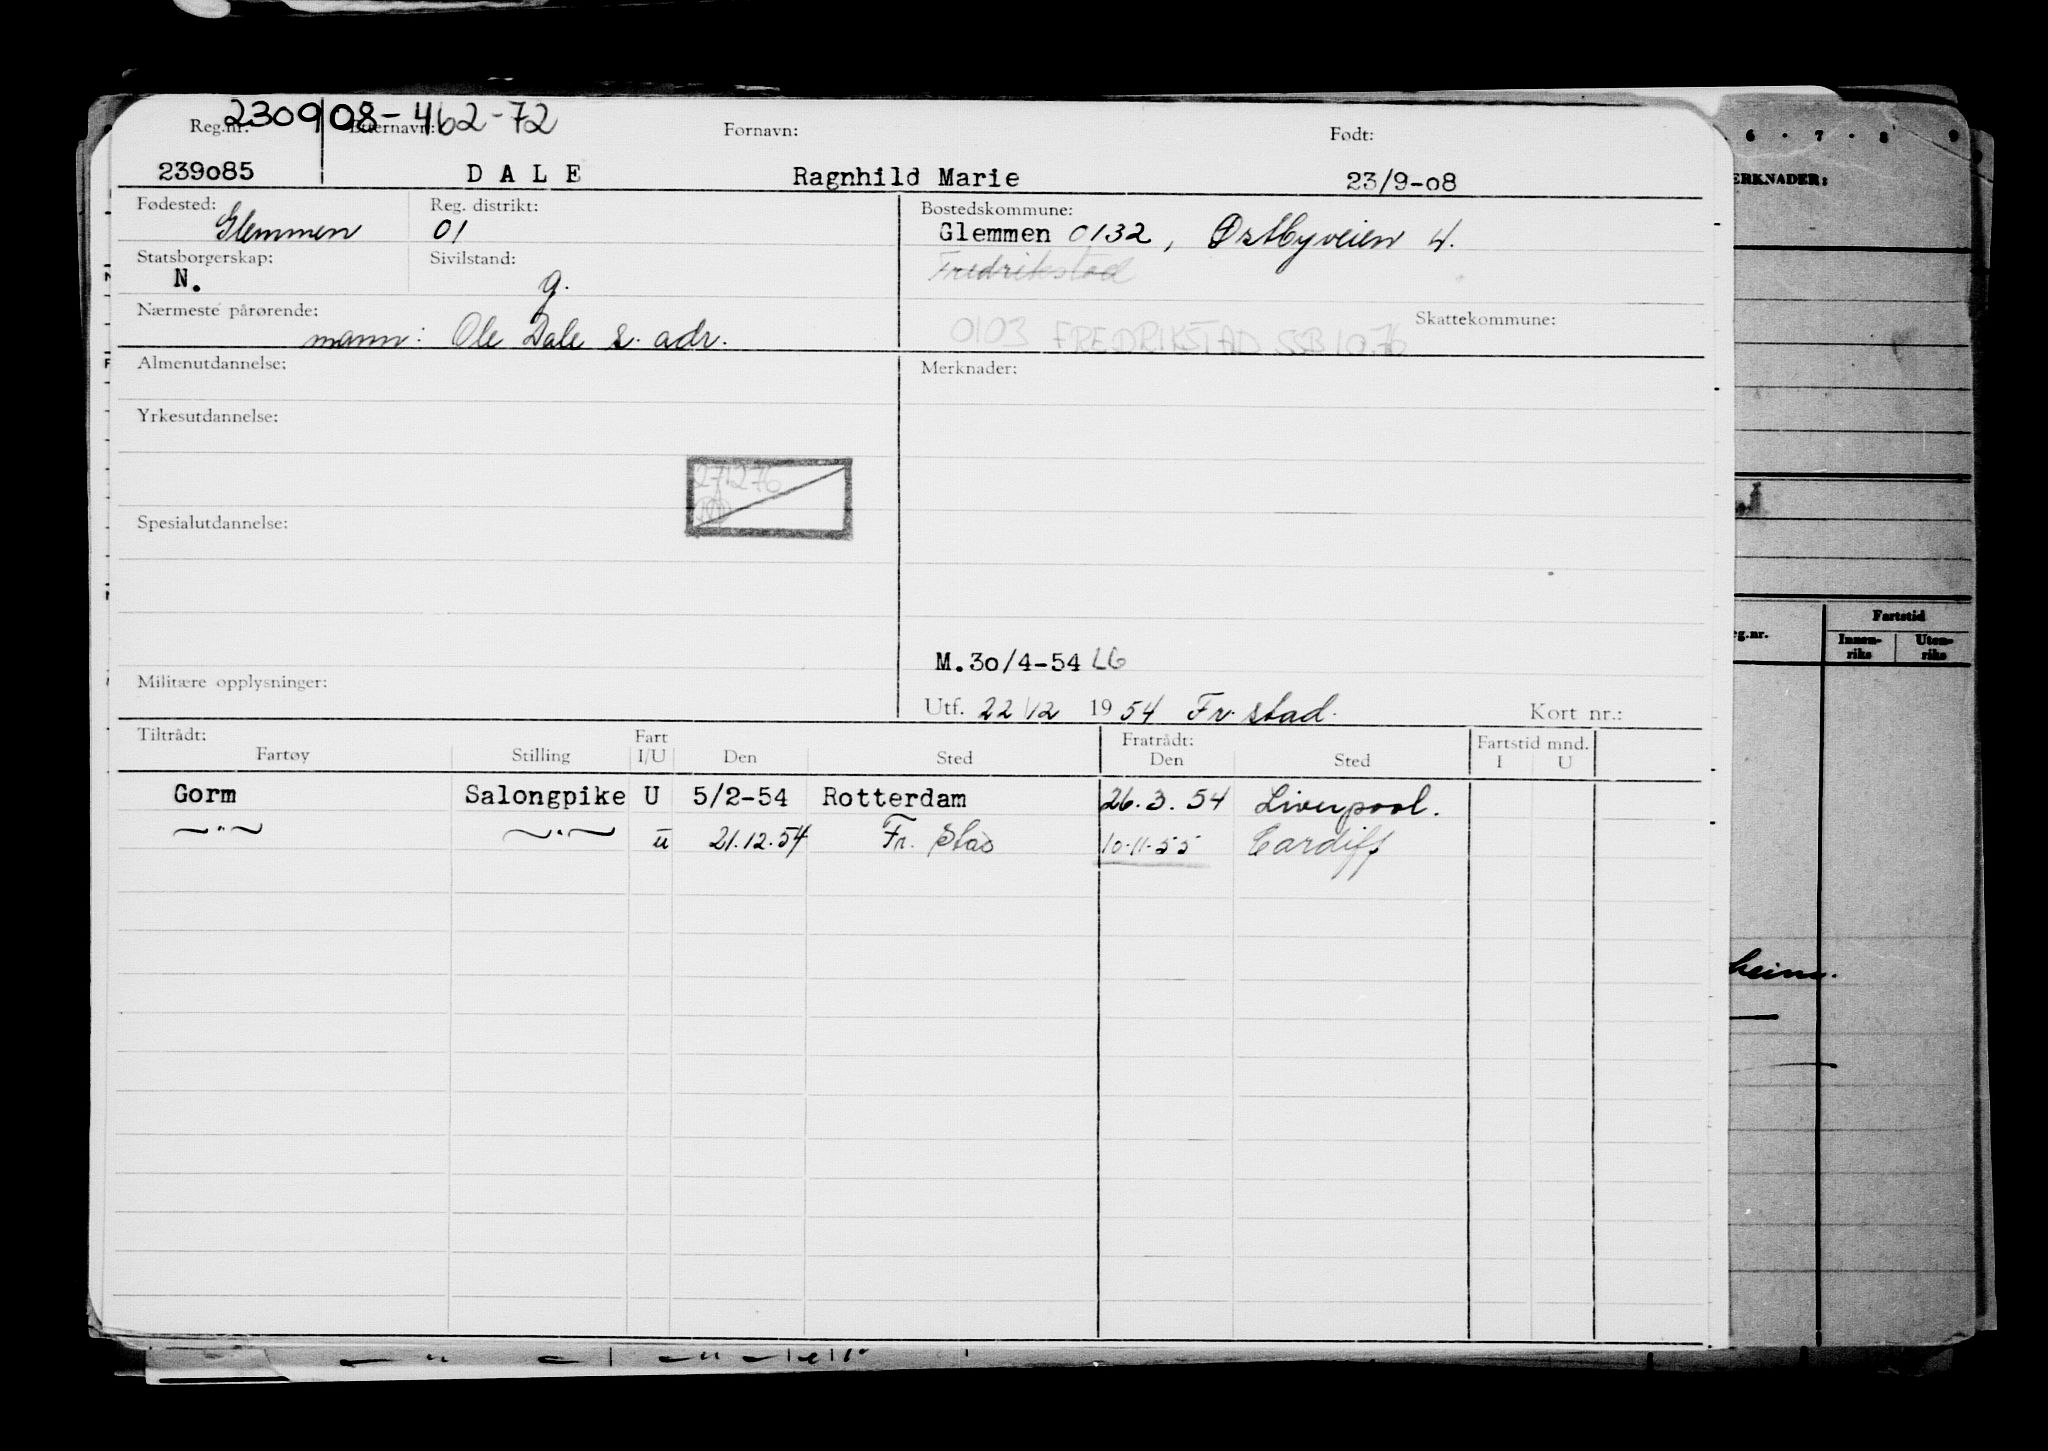 230908-462-72
Reg.nr. Etternavn: Fornavn: Født:
239085 DALE Ragnhild Marie 23/9-08
Fødested: Reg. distrikt: Bostedskommune:
Glemmen 01 Glemmen 0132, Østbyveien 4.
Statsborgerskap: Sivilstand: Fredrikstad
N. g.
Nærmeste pårørende: Skattekommune:
mann: Ole Dale s. adr. 0103 FREDRIKSTAD SSB 10.76
Almenutdannelse: Merknader:
Yrkesutdannelse:
271276
Spesialutdannelse:
M.30/4-54 LG
Militære opplysninger:
Utf. 22/12 1954 Fr.stad. Kort nr.:
Tiltrådt: Fart Fratrådt: Fartstid mnd.
Fartøy Stilling I/U Den Sted Den Sted I U
Gorm Salongpike U 5/2-54 Rotterdam 26.3.54 Liverpool.
—"— —"— u 21.12.54 Fr. Stad 10.11.55 Cardiff
6 · 7 · 8 · 9
ERKNADER:
g.nr. Fartstid
Innen-riks Uten-riks
heim.